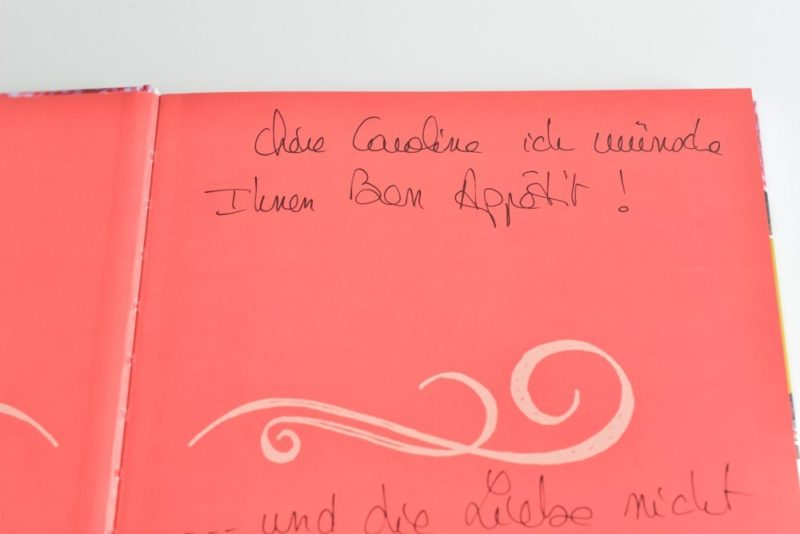 Chère Caroline ich wünsche
Ihnen Bon Appétit !
--- und die Liebe nicht